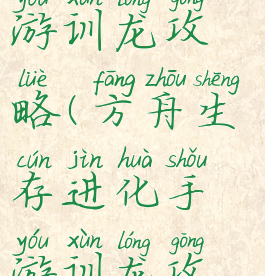 yóu xùn lóng gōng
游训龙攻
lüè fāng zhōu shēng
略(方舟生
cún jìn huà shǒu
存进化手
yóu xùn lóng gōng
游训龙攻